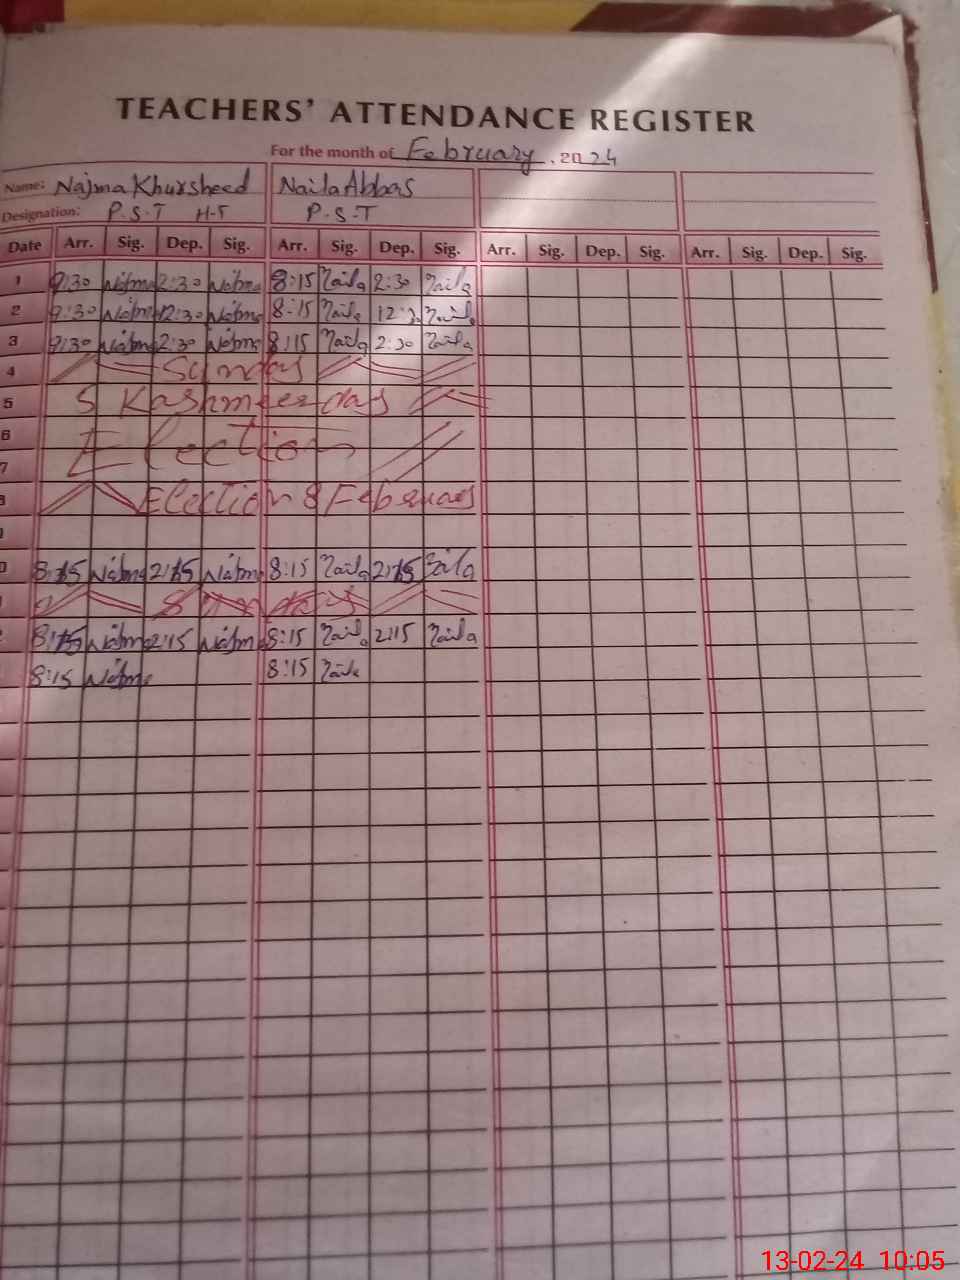 TEACHERS' ATTENDANCE REGISTER
For the month of February, 2024
Name: Najma Khursheed Naila Abbas
Designation: P.S.T H-T P.S.T
Date Arr. Sig. Dep. Sig. Arr. Sig. Dep. Sig. Arr. Sig. Dep. Sig. Arr. Sig. Dep. Sig.
1 9:30 Najma 2:30 Najma 8:15 Naila 2:30 Naila
2 9:30 Najma 12:30 Najma 8:15 Naila Naila
3 9:30 Najma 2:30 Najma 8:15 Naila 2:30 Naila
4 Sunday
5 5 Kashmeer day
6 Election
7
8 Election 8 February
8:15 Najma 2:15 Najma 8:15 Naila 2:15 Naila
Sunday
8:15 Najma 2:15 Najma 8:15 Naila 2:15 Naila
8:15 Najma 8:15 Naila
13-02-24 10:05